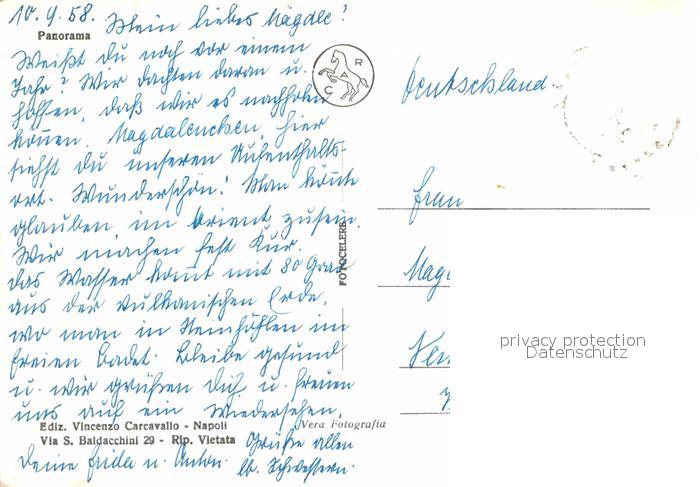 10.9.58. Mein liebes Mägdle!
Panorama
Weißt du noch vor einem
Jahr? Wir dachten daran u.
hoffen, daß wir es nachholen
können. Magdalenchen, hier
siehst du unseren Aufenthalts-
ort. Wunderschön! Man könnte
glauben, im Orient zu sein.
Wir machen fest Kur.
das Wasser kommt mit 80 Grad
aus der vulkanischen Erde,
wo man in Steinhöhlen im
freien badet. Bleibe gesund
u. wir grüßen dich u. freuen
uns auf ein Wiedersehen.
Ediz. Vincenzo Carcavallo - Napoli
Via S. Baldacchini 29 - Rip. Vietata
Deine Frida u. Anton.
Grüße allen
lb. Schwestern.
Vera Fotografia
FOTOCELERE
R
A
C
Deutschland.
Frau
Mag
privacy protection
Datenschutz